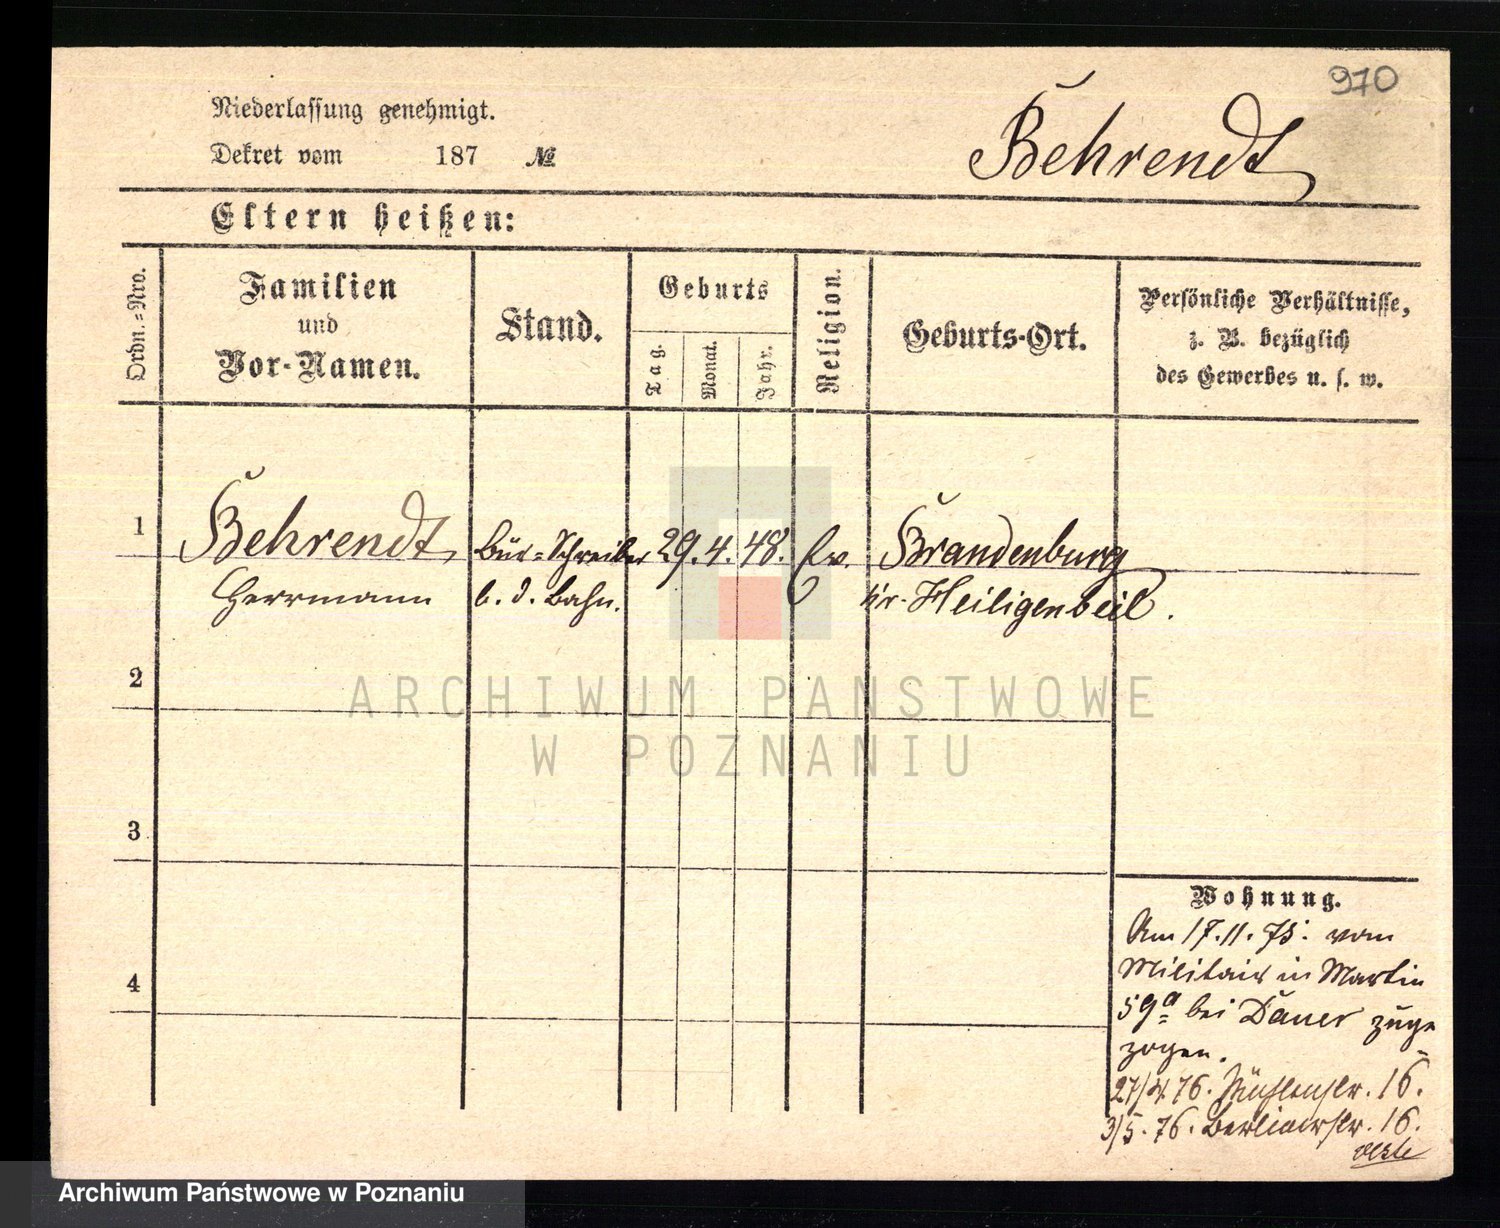 970
Niederlassung genehmigt.
Dekret vom 187 №
Behrendt
Eltern heißen:
Ordn.-Nro.
Familien
und
Vor-Namen.
Stand.
Geburts
Tag.
Monat.
Jahr.
Religion.
Geburts-Ort.
Persönliche Verhältnisse,
z. B. bezüglich
des Gewerbes u. s. w.
1 Behrendt, Bür-Schreiber 29. 4. 48. Ev. Brandenburg
Herrmann b. d. Bahn. Kr. Heiligenbeil.
2
3
4
Wohnung.
Am 17.11.75. vom
Militair in Martin
59a bei Dauer zuge
zogen.
27/4 76. Mühlenstr. 16.
3/5. 76. Berlinerstr. 16.
ARCHIWUM PANSTWOWE
W POZNANIU
Archiwum Państwowe w Poznaniu